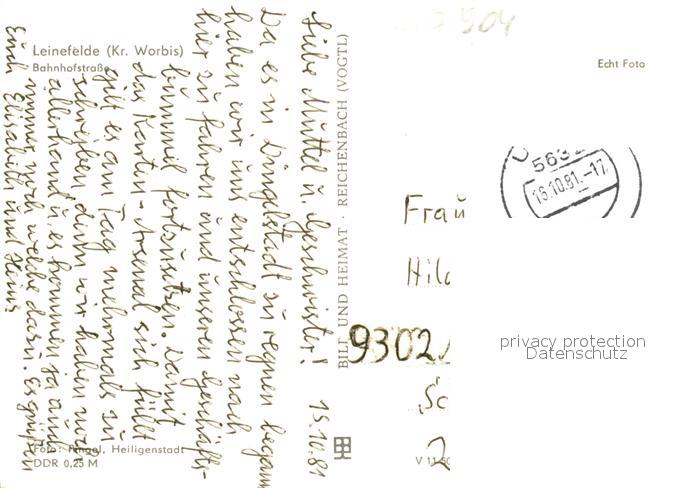 904
Leinefelde (Kr. Worbis)
Bahnhofstraße
Echt Foto
15.10.81
Liebe Muttel u. Geschwister!
Da es in Dingelstädt zu regnen begann
haben wir uns entschlossen nach
hier zu fahren und unseren Geschäfts-
bummel fortzusetzen. Damit
das Karten-Arsenal sich füllt
gilt es am Tag mehrmals zu
schreiben denn wir haben noch
allerhand u. es kommen ja auch
immer noch welche dazu. Es grüßen
Euch Elisabeth und Heinz
BILD UND HEIMAT · REICHENBACH (VOGTL)
563
16.10.81.-17
Frau
Hild
9302
Sc
2
privacy protection
Datenschutz
Foto: Ringel, Heiligenstadt
DDR 0,25 M
V 11 50